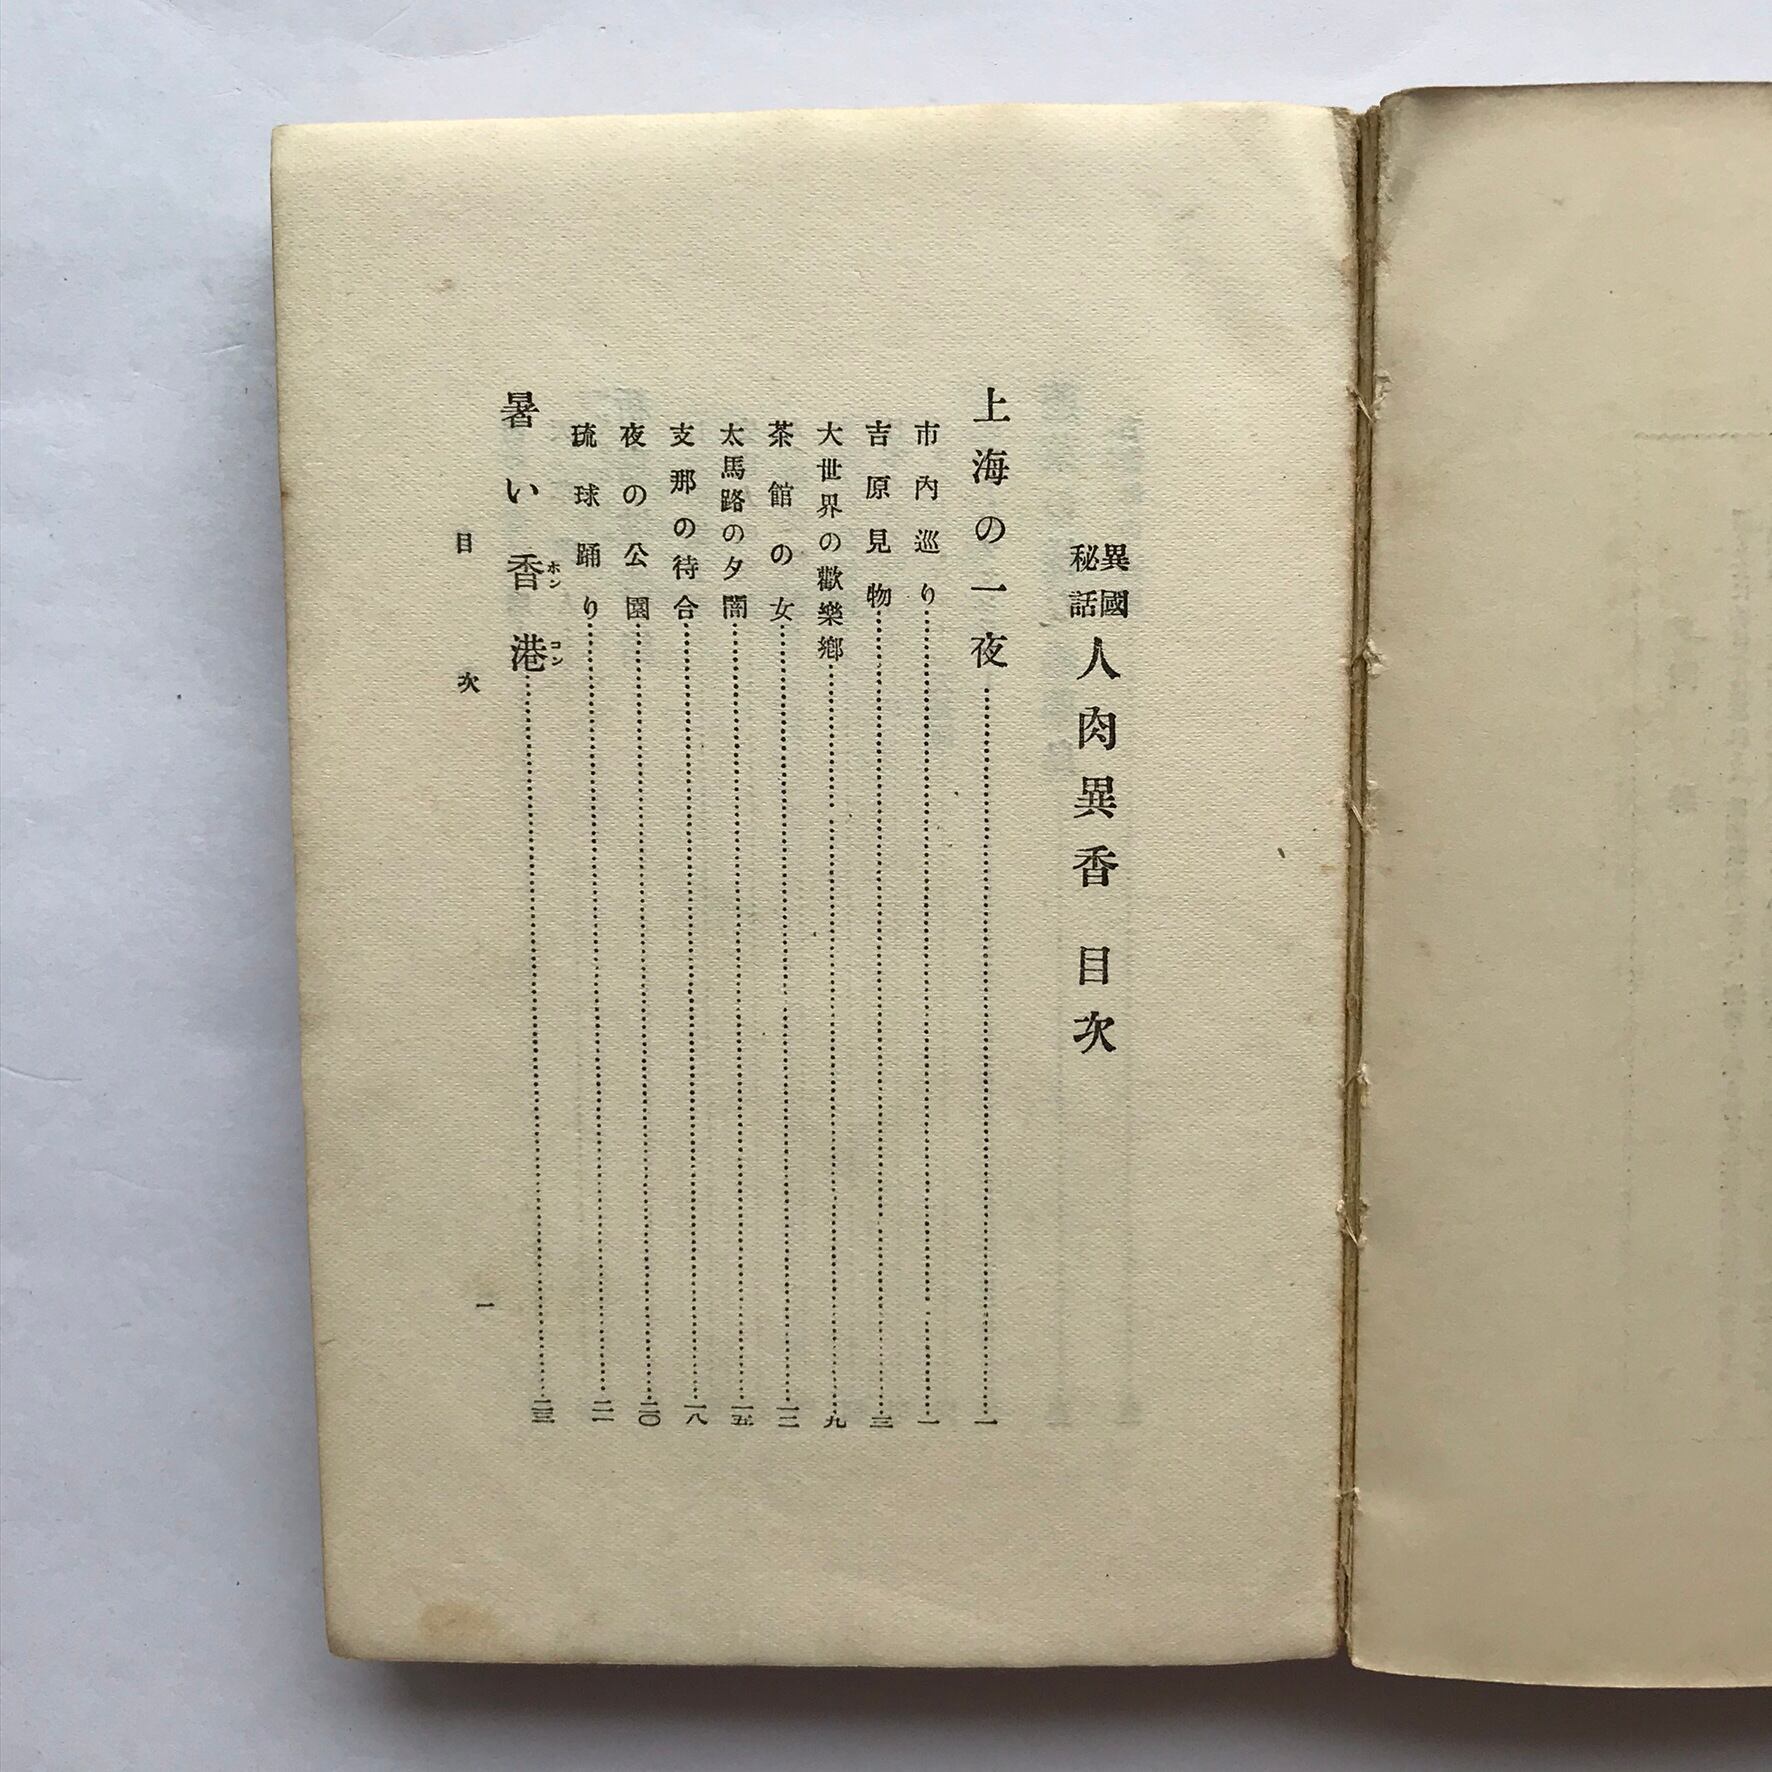 異國秘話 人肉異香 目次
上海の一夜………一
市內巡り………一
吉原見物………三
大世界の歡樂鄕………九
茶館の女………一二
太馬路の夕闇………一五
支那の待合………一八
夜の公園………二〇
琉球踊り………二一
暑い香港………二三
ホンコン
目次
一